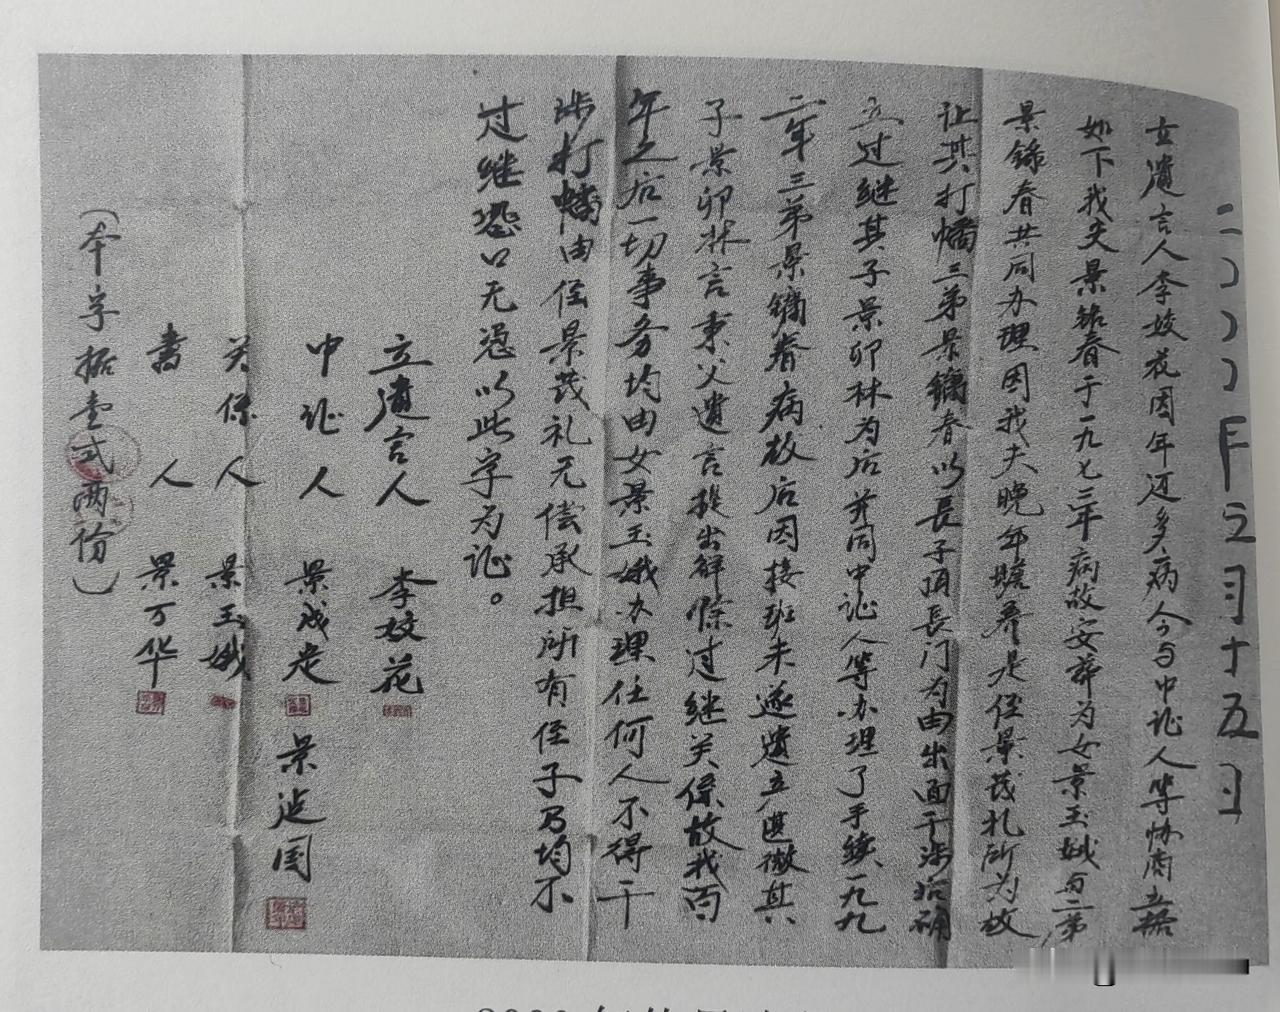 二〇〇〇年五月十五日
立遗言人李姣花因年迈多病人今与中证人等协商立据
如下我夫景铭春于一九七二年病故安葬为女景玉娥与二弟
景錄春共同办理因我夫晚年赡养是侄景茂礼所为故
让其打幡三弟景镛春以長子顶長门为由出面干涉后确
立过继其子景卯林为后并同中证人等办理了手续一九九
二年三弟景镛春病故后因接班未遂遗立匪徽其
子景卯林言秉父遗言提出解除过继关係故我百
年之后一切事务均由女景玉娥办理任何人不得干
涉打幡由侄景茂礼无偿承担所有侄子乃均不
过继恐口无凭以此字为证。
立遗言人 李姣花
中证人 景成先 景运国
关係人 景玉娥
書人 景万华
（本字据壹式两份）